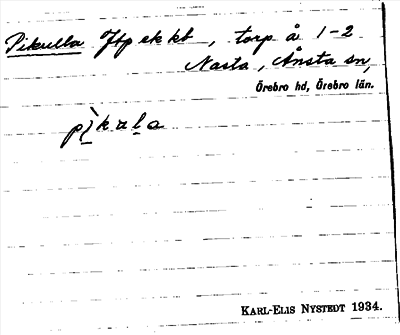 Pikulla Jtp ek kt, torp å 1-2
Nasta, Ånsta sn,
Örebro hd, Örebro län.
pìkala
KARL-ELIS NYSTEDT 1934.